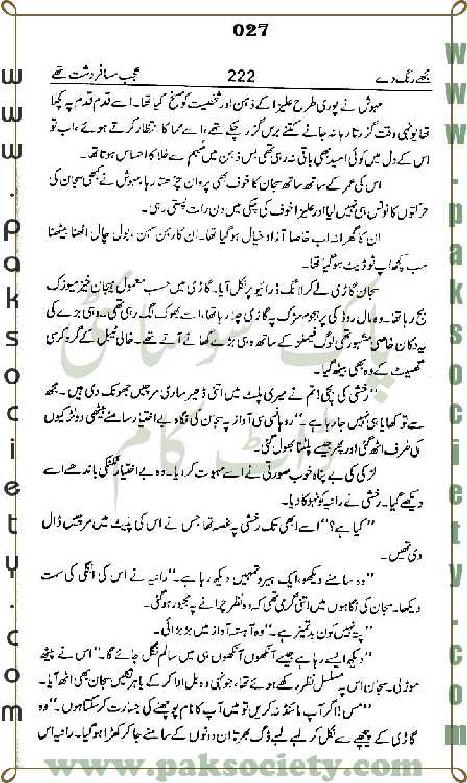 027
مجھے رنگ دے 222 عجب مسافر دشت تھے
مہوش نے پوری طرح علیزا کے ذہن اور شخصیت کو مسخ کیا تھا۔ اسے قدم قدم پہ کچلا
تھا یونہی وقت گزرتا رہا نہ جانے کتنے برس گزر چکے تھے، اسے مما کا انتظار کرتے ہوئے، اب تو
اس کے دل میں کوئی امید بھی باقی نہ رہی تھی بس ذہن میں مبہم سے خلا کا احساس ہوتا تھا۔
اس کی عمر کے ساتھ ساتھ سبحان کا خوف بھی پروان چڑھتا رہا، مہوش نے کبھی سبحان کی
حرکتوں کا نوٹس ہی نہیں لیا اور علیزا خوف کی چکی میں دن رات پستی رہی۔
ان کا گھرانہ اب خاصا آزاد خیال ہو گیا تھا۔ ان کا رہن سہن، بول چال اٹھنا بیٹھنا
سب کچھ اپ ٹو ڈیٹ ہو گیا تھا۔
سبحان گاڑی لے کر لانگ ڈرائیو پر نکل آیا۔ گاڑی میں حسب معمول ہیجان خیز میوزک
بج رہا تھا۔ وہ مال روڈ کی پر ہجوم سڑک پہ گاڑی چلا رہا تھا، اسے بھوک لگ رہی تھی۔ دہی بڑے کی
یہ دکان خاصی مشہور تھی لوگ فیملیز کے ساتھ دہی بڑے کھانے آتے تھے۔ خالی ٹیبل کے گرد کرسی
گھسیٹ کے وہ بھی بیٹھ گیا۔
”رخشی کی بچی! تم نے میری پلیٹ میں اتنی ڈھیر ساری مرچیں جھونک دی ہیں۔ مجھ
سے تو کھایا ہی نہیں جا رہا ہے۔“ روہانسی سی آواز پہ سبحان کی نگاہ بے اختیار سامنے بیٹھی دو لڑکیوں
کی طرف اٹھ گئی اور پھر جیسے پلٹنا بھول گئی۔
لڑکی کی بے پناہ خوب صورتی نے اسے مبہوت کر دیا۔ وہ بے اختیار ٹکٹکی باندھے اسے
دیکھے گیا۔ رخشی نے رانیہ کو ٹہوکا دیا۔
”کیا ہے؟“ اسے ابھی تک رخشی پہ غصہ تھا جس نے اس کی پلیٹ میں مرچیں ڈال
دی تھیں۔
”وہ سامنے دیکھو، ایک ہیرو تمہیں دیکھ رہا ہے۔“ رانیہ نے اس کی انگلی کی سمت
دیکھا۔ سبحان کی نگاہوں میں اتنی گرمی تھی کہ وہ نظر چرانے پہ مجبور ہو گئی۔
”پتہ نہیں کون بدتمیز ہے۔“ وہ آہستہ آواز میں بڑبڑائی۔
”دیکھ ایسے رہا ہے جیسے آنکھوں آنکھوں ہی میں سالم نگل جائے گا۔“ اس نے پیٹھ
موڑ لی۔ سبحان اس پہ مسلسل نظر رکھے ہوئے تھا، جونہی وہ بل ادا کر کے باہر نکلیں سبحان بھی اٹھ آیا۔
”مس! اگر آپ مائنڈ نہ کریں تو میں آپ کا نام پوچھنے کی جسارت کر سکتا ہوں۔“ وہ
گاڑی کے پیچھے سے نکل کر لمبے لمبے ڈگ بھرتا ان دونوں کے سامنے جا کر کھڑا ہو گیا۔ رانیہ اس
پاک سوسائٹی
ڈاٹ کام
www.paksociety.com
www.paksociety.com
www.paksociety.com